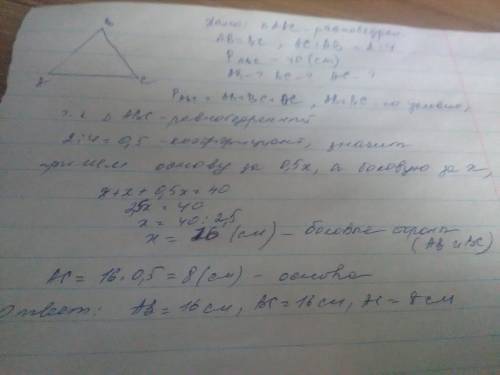 B
A
C
Дано: △ABC - равнобедрен.
AB = BC, AC:AB = 2:4
P ABC = 40 (см)
AB - ? BC - ? AC - ?
P ABC = AB+BC+AC, AB=BC по условию,
т.к. △ABC - равнобедренный
2:4 = 0,5 - коэффициент, значит
примем основу за 0,5x, а боковую за x,
x+x+0,5x = 40
2,5x = 40
x = 40:2,5
x = 16 (см) - боковые стороны
(AB и BC)
AC = 16·0,5 = 8 (см) - основа
Ответ: AB = 16 см, BC = 16 см, AC = 8 см